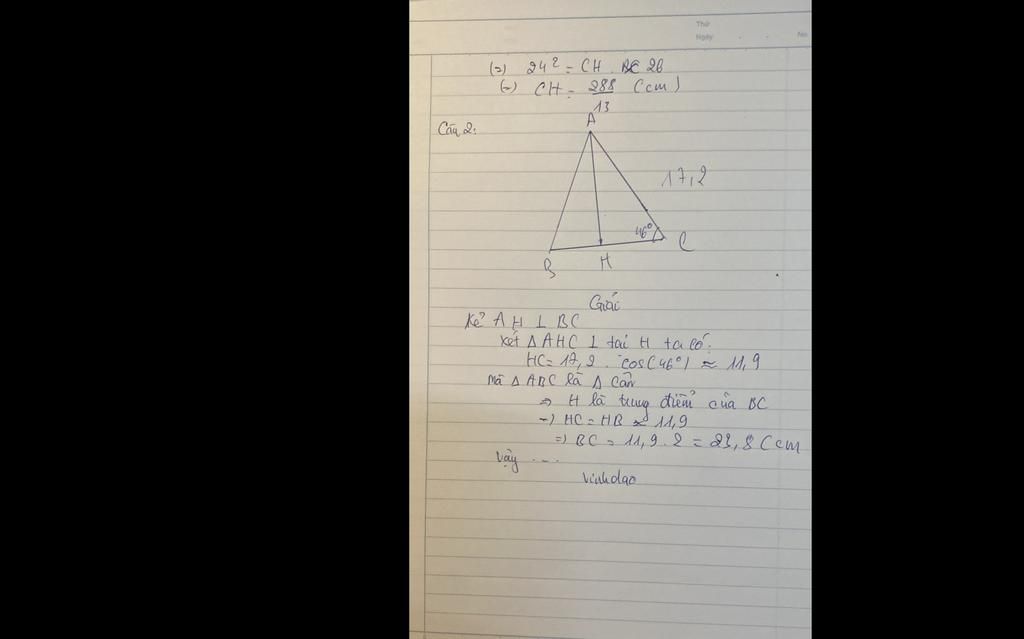 Thứ
Ngày
No
(=) 24² = CH . BC 26
(=) CH = 288/13 (cm)
Câu 2:
A
17,2
46°
B
H
C
Giải
Kẻ AH ⊥ BC
Xét Δ AHC ⊥ tại H ta có:
HC = 17,2 . cos(46°) ≈ 11,9
mà Δ ABC là Δ cân
=> H là trung điểm của BC
=) HC = HB ≈ 11,9
=) BC = 11,9 . 2 = 23,8 (cm
Vậy ...
vinhdao